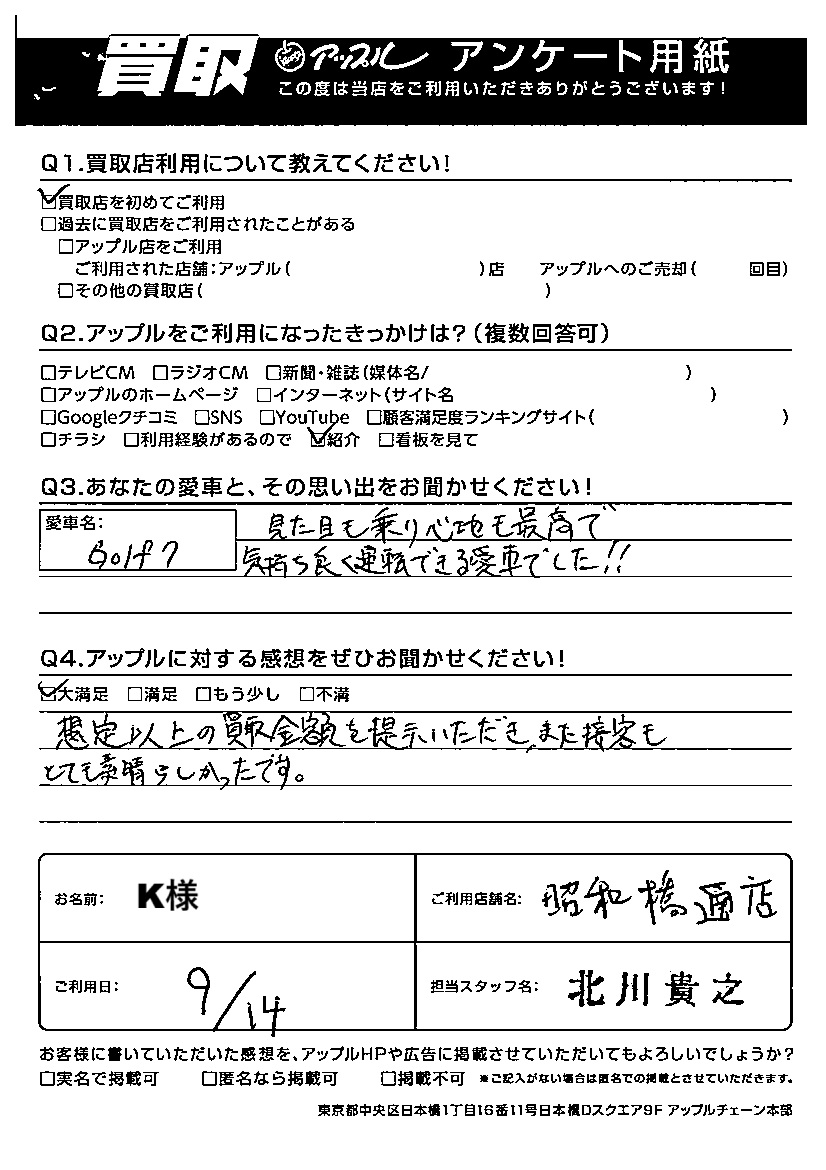 買取 アップル アンケート用紙
この度は当店をご利用いただきありがとうございます!
Q1.買取店利用について教えてください!
☑買取店を初めてご利用
□過去に買取店をご利用されたことがある
□アップル店をご利用
ご利用された店舗:アップル( )店 アップルへのご売却( 回目)
□その他の買取店( )
Q2.アップルをご利用になったきっかけは?(複数回答可)
□テレビCM □ラジオCM □新聞・雑誌(媒体名/ )
□アップルのホームページ □インターネット(サイト名 )
□Googleクチコミ □SNS □YouTube □顧客満足度ランキングサイト( )
□チラシ □利用経験があるので ☑紹介 □看板を見て
Q3.あなたの愛車と、その思い出をお聞かせください!
愛車名:
Golf7
見た目も乗り心地も最高で
気持ち良く運転できる愛車でした!!
Q4.アップルに対する感想をぜひお聞かせください!
☑大満足 □満足 □もう少し □不満
想定以上の買取金額を提示いただき、また接客も
とても素晴らしかったです。
お名前: K様 ご利用店舗名: 昭和橋通店
ご利用日: 9/14 担当スタッフ名: 北川貴之
お客様に書いていただいた感想を、アップルHPや広告に掲載させていただいてもよろしいでしょうか?
□実名で掲載可 □匿名なら掲載可 □掲載不可 ※ご記入がない場合は匿名での掲載とさせていただきます。
東京都中央区日本橋1丁目16番11号日本橋Dスクエア9F アップルチェーン本部